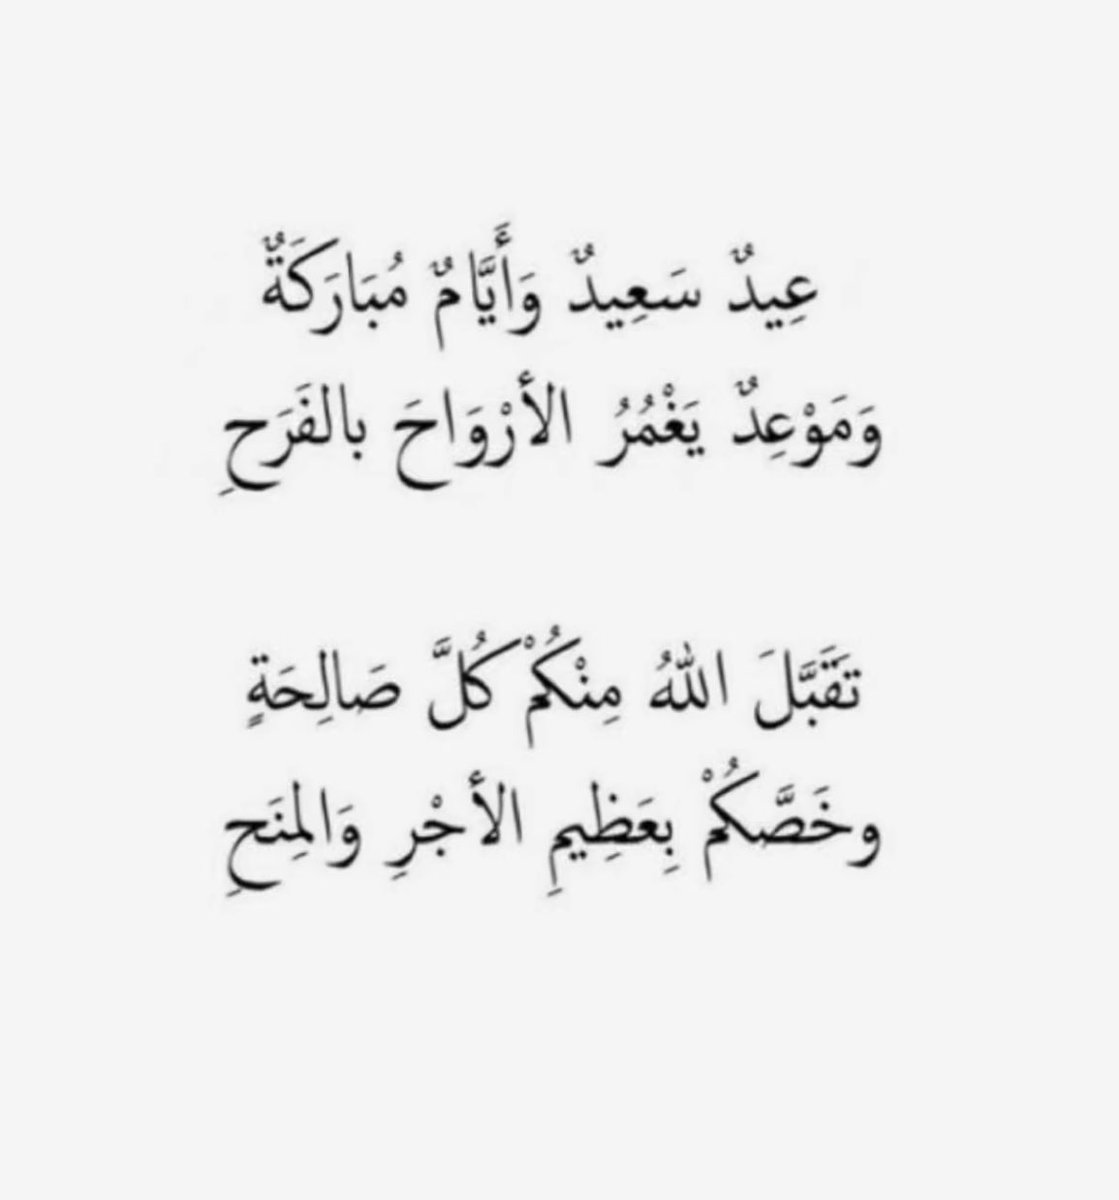 عِيدٌ سَعِيدٌ وَأَيَّامٌ مُبَارَكَةٌ
وَمَوْعِدٌ يَغْمُرُ الأرْوَاحَ بالفَرَحِ
تَقَبَّلَ اللهُ مِنْكُمْ كُلَّ صَالِحَةٍ
وخَصَّكُمْ بِعَظِيمِ الأجْرِ وَالمِنَحِ